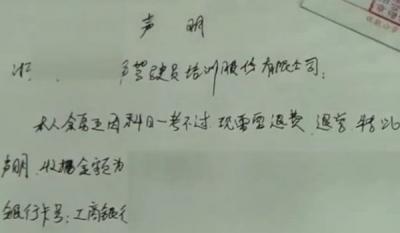 声明
驾驶员培训股份有限公司:
本人余 因科目一考不过,现需要退费、退学,特此
声明,收据金额为
银行卡号:工商银行